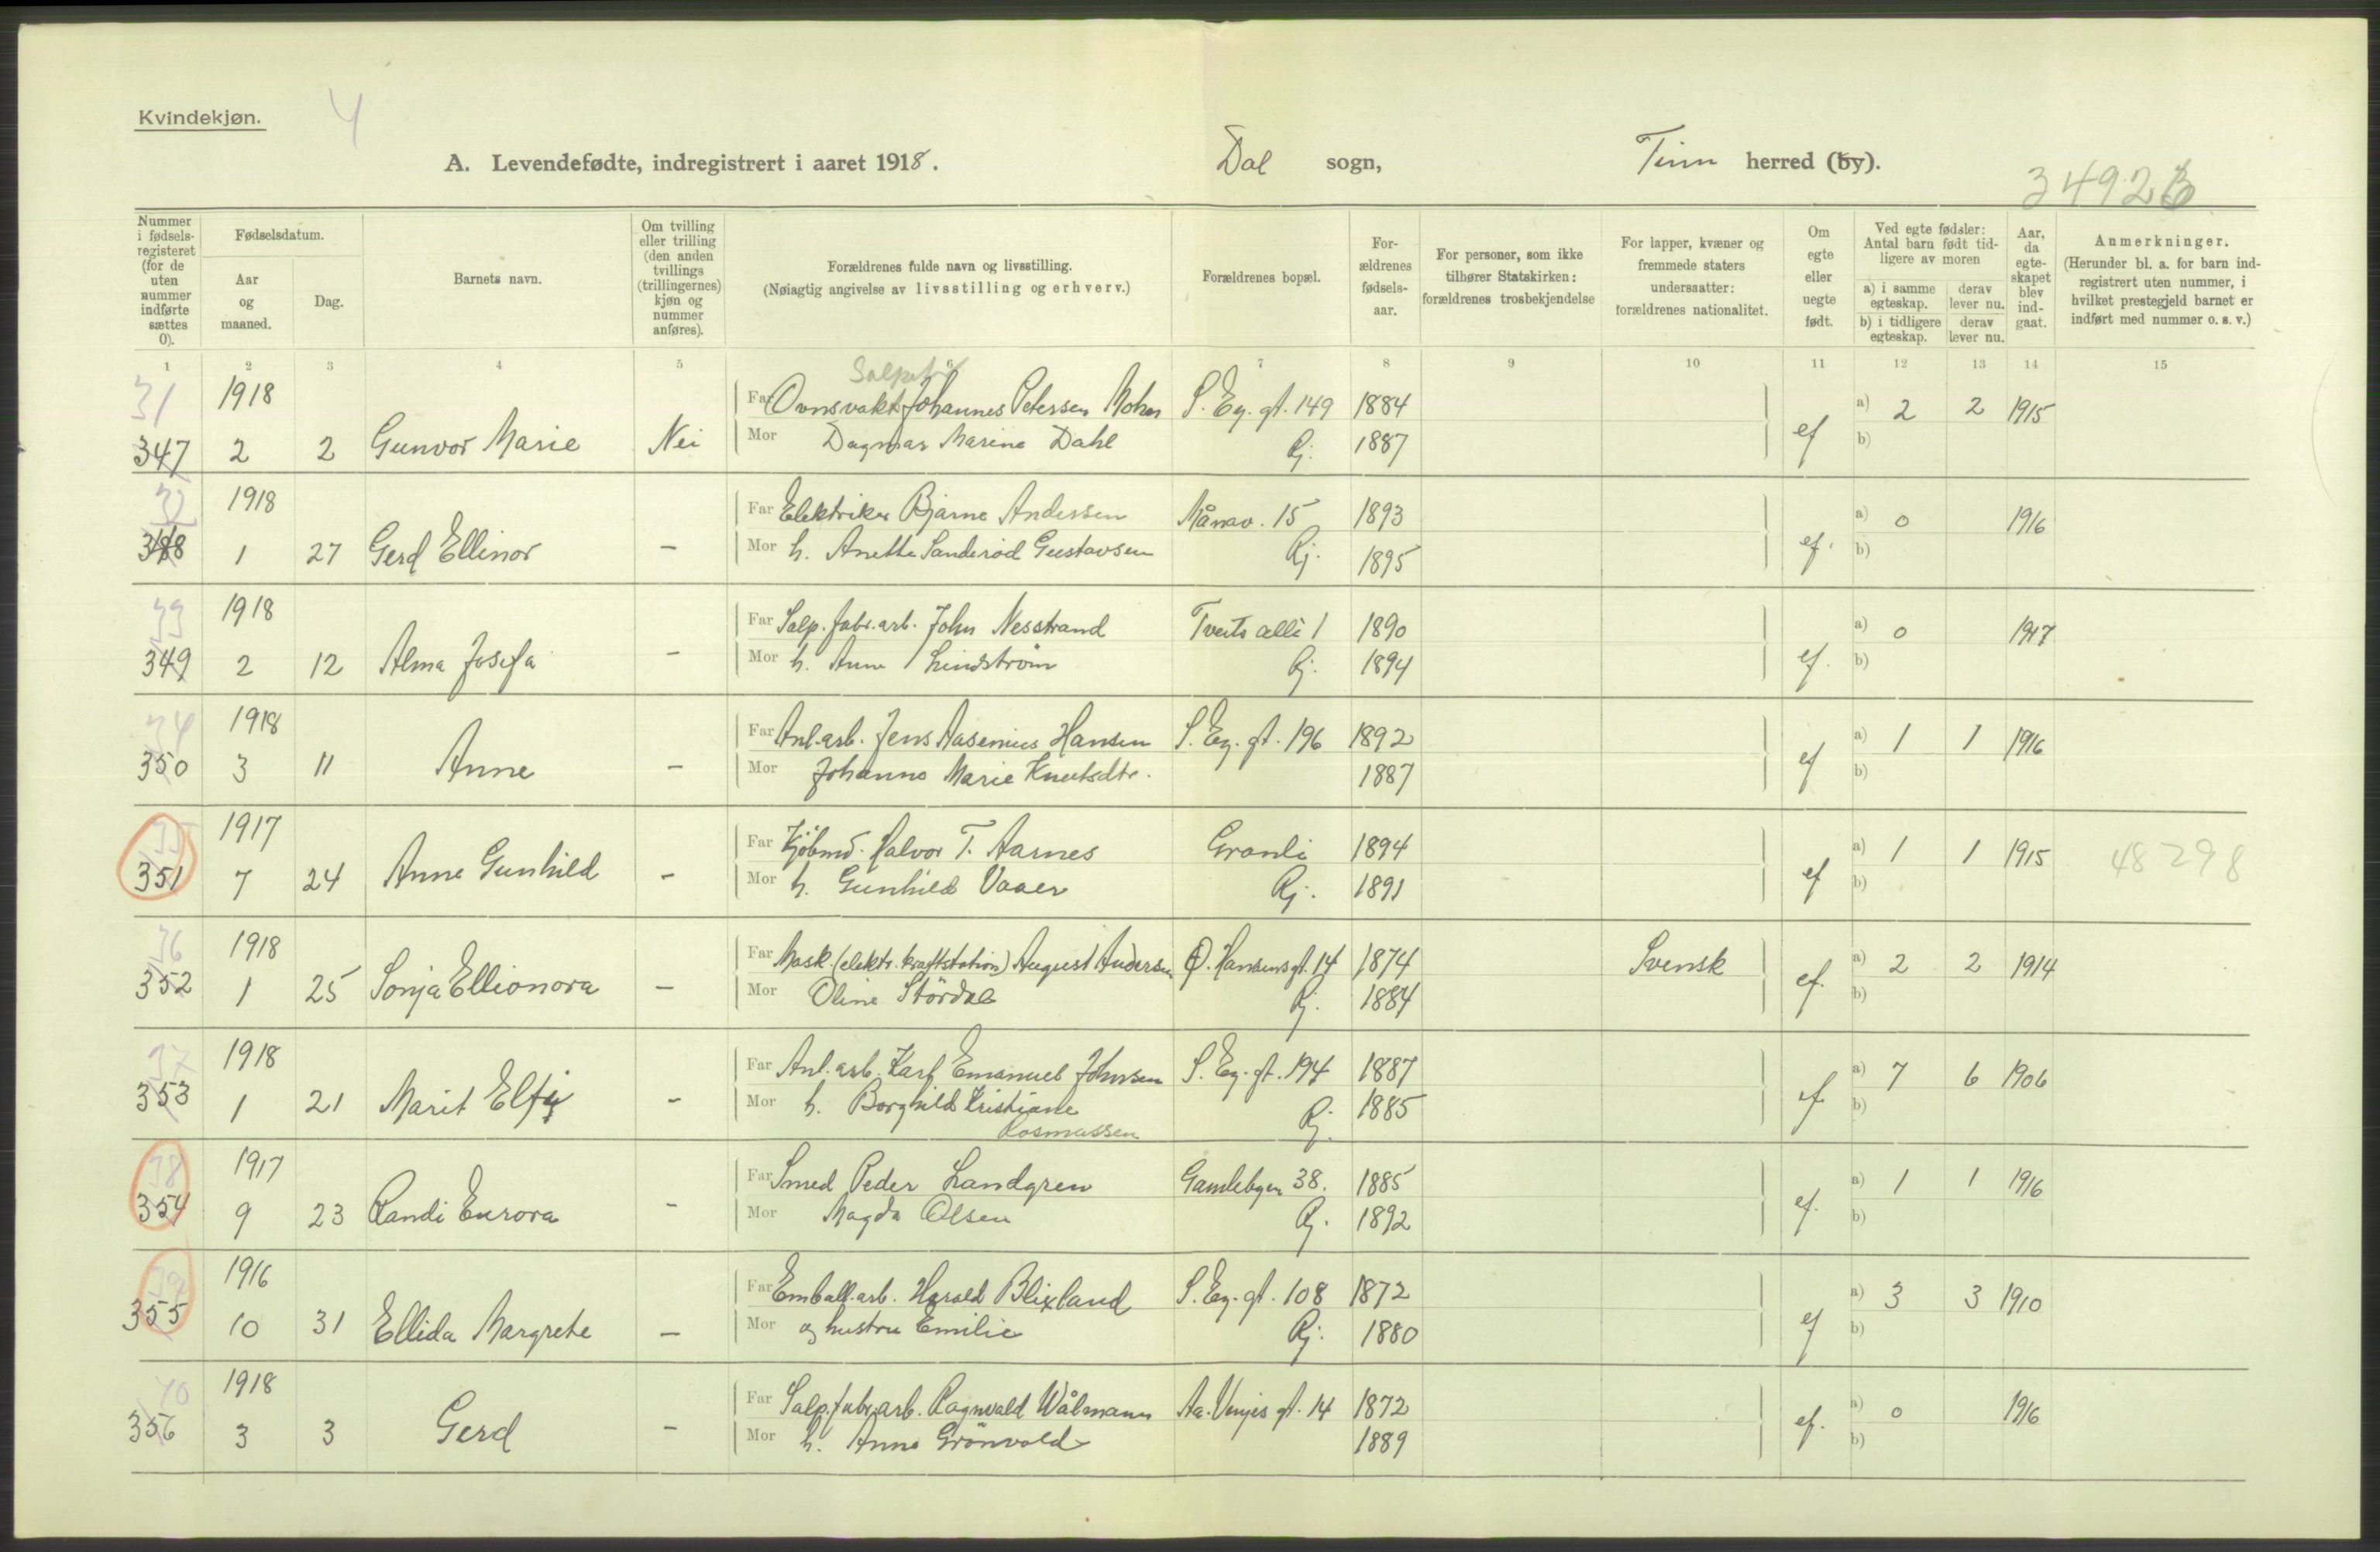 Kvindekjøn.
4
A. Levendefødte, indregistrert i aaret 1918. Dal sogn, Tinn herred (by).
34923
Nummer i fødsels-registeret (for de uten nummer indførte sættes 0).
Fødselsdatum.
Aar og maaned.
Dag.
Barnets navn.
Om tvilling eller trilling (den anden tvillings (trillingernes) kjøn og nummer anføres).
Forældrenes fulde navn og livsstilling.
(Nøiagtig angivelse av livsstilling og erhverv.)
Forældrenes bopæl.
For-ældrenes fødsels-aar.
For personer, som ikke tilhører Statskirken: forældrenes trosbekjendelse
For lapper, kvæner og fremmede staters undersaatter: forældrenes nationalitet.
Om egte eller uegte født.
Ved egte fødsler: Antal barn født tid-ligere av moren
a) i samme egteskap.
derav lever nu.
b) i tidligere egteskap.
derav lever nu.
Aar, da egte-skapet blev ind-gaat.
Anmerkninger.
(Herunder bl. a. for barn ind-registrert uten nummer, i hvilket prestegjeld barnet er indført med nummer o. s. v.)
1 2 3 4 5 6 7 8 9 10 11 12 13 14 15
31 1918 Far Ovnsvakt Johannes Petersen Mohn S. Eg. gt. 149 1884 a) 2 2 1915
347 2 2 Gunvor Marie Nei Mor Dagmar Marine Dahl Rj. 1887 ef b)
32 1918 Far Elektriker Bjarne Andersen Månav. 15 1893 a) 0 1916
348 1 27 Gerd Ellinor - Mor h. Anette Sanderød Gustavsen Rj. 1895 ef. b)
33 1918 Far Salp. fabr. arb. John Nesstrand Tveits allé 1 1890 a) 0 1917
349 2 12 Alma Josefa - Mor h. Anne Lindström Rj. 1894 ef. b)
34 1918 Far Anl. arb. Jens Aasenius Hansen S. Eg. gt. 196 1892 a) 1 1 1916
350 3 11 Anne - Mor Johanne Marie Knutsdtr. 1887 ef b)
35 1917 Far Kjöbmd. Halvor T. Aarnes Granli 1894 a) 1 1 1915 48298
351 7 24 Anne Gunhild - Mor h. Gunhild Vaaer Rj. 1891 ef b)
36 1918 Far Mask. (elektr. kraftstation) August Andersen O. Hansens gt. 14 1874 Svensk a) 2 2 1914
352 1 25 Sonja Ellionora - Mor Oline Stördal Rj. 1884 ef. b)
37 1918 Far Anl. arb. Karl Emanuel Johnsen S. Eg. gt. 194 1887 a) 7 6 1906
353 1 21 Marit Elfi - Mor h. Borghild Kristiane Rasmussen Rj. 1885 ef b)
38 1917 Far Smed Peder Landgren Gamlebyen 38. 1885 a) 1 1 1916
354 9 23 Randi Eurora - Mor Magda Olsen Rj. 1892 ef. b)
39 1916 Far Emball. arb. Harald Blixland S. Eg. gt. 108 1872 a) 3 3 1910
355 10 31 Ellida Margrete - Mor og hustru Emilie Rj. 1880 ef b)
40 1918 Far Salp. fabr. arb. Ragnvald Wålmann Aa. Vinjes gt. 14 1872 a) 0 1916
356 3 3 Gerd - Mor h. Anna Grönvold 1889 ef. b)